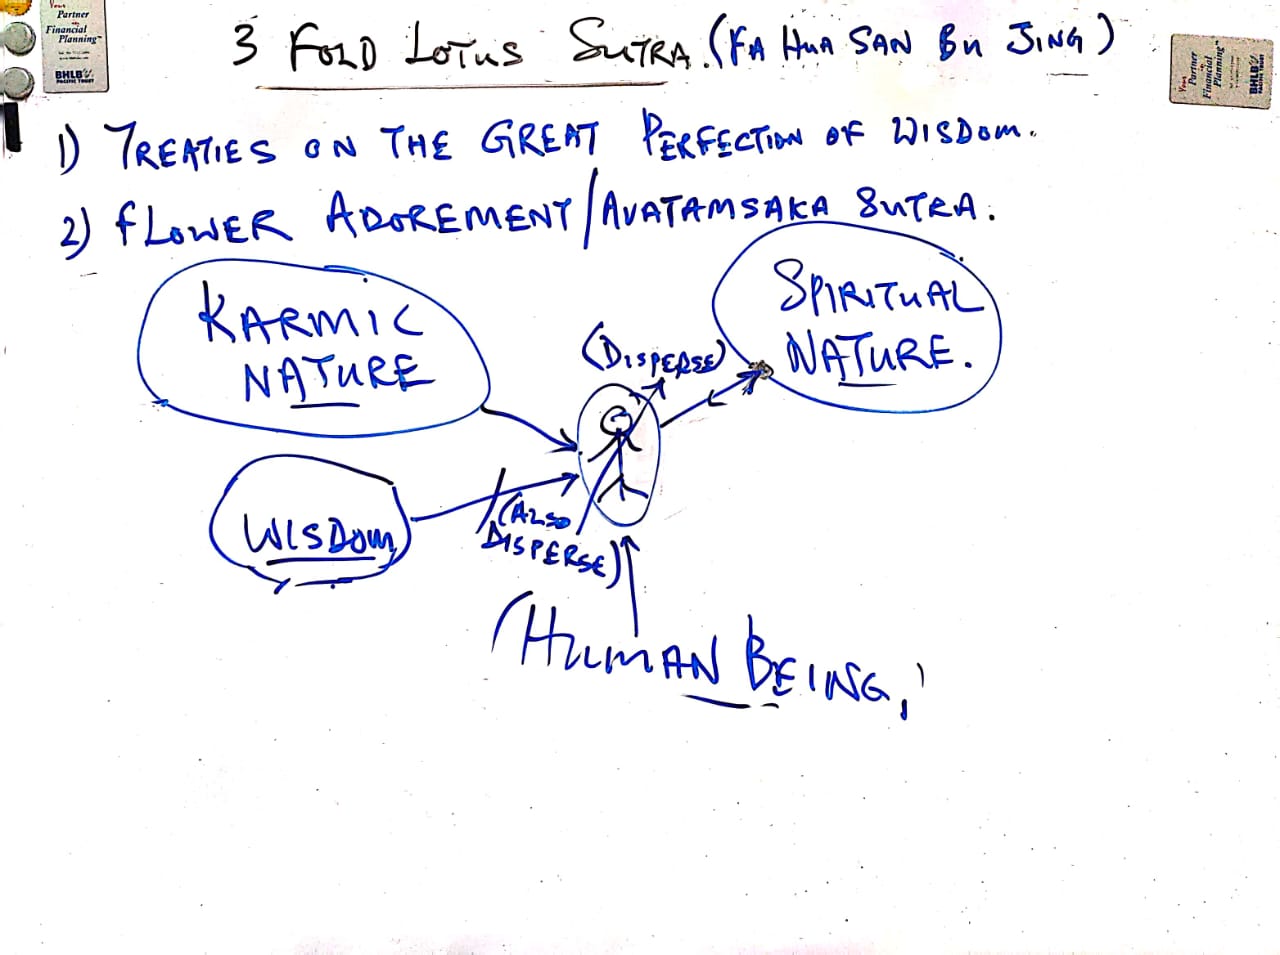 Your
Partner
in
Financial
Planning™
BHLB
PACIFIC TRUST
3 FOLD LOTUS SUTRA. (FA HUA SAN BU JING)
Your
Partner
in
Financial
Planning™
BHLB
1) TREATIES ON THE GREAT PERFECTION OF WISDOM.
2) FLOWER ADOREMENT/AVATAMSAKA SUTRA.
KARMIC
NATURE
SPIRITUAL
NATURE.
(DISPERSE)
WISDOM
(ALSO
DISPERSE)
(HUMAN BEING,)